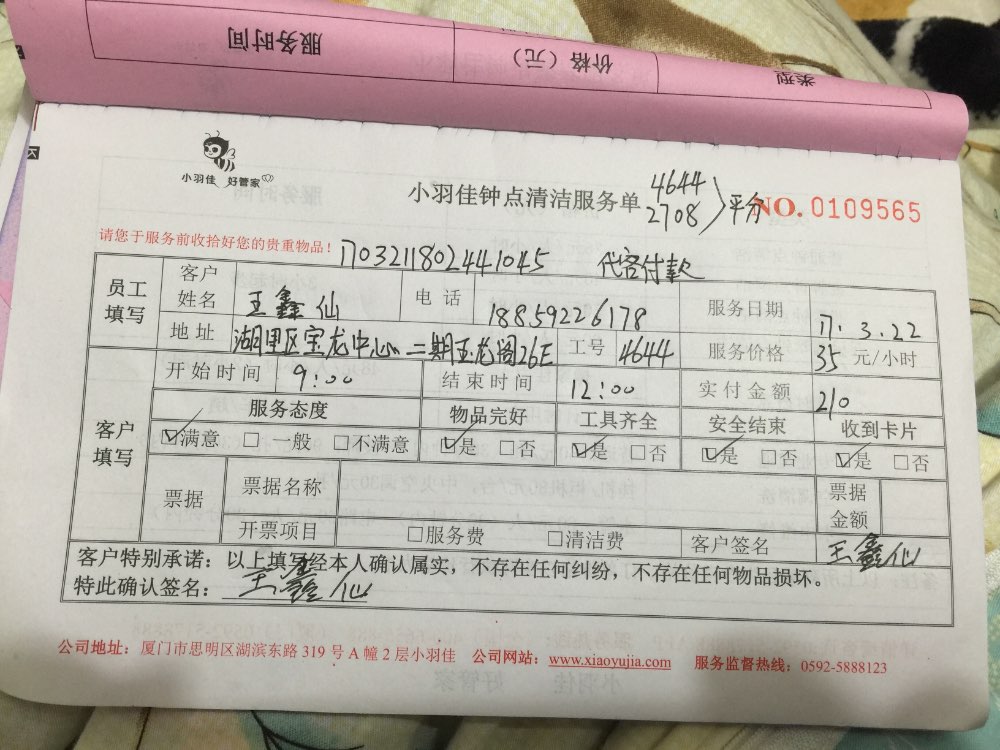 服务时间 价格（元） 类型
小羽佳 好管家
小羽佳钟点清洁服务单 4644 2708 平分 NO. 0109565
请您于服务前收拾好您的贵重物品！ 1703211802441045 代客付款
员工填写 客户姓名 王鑫仙 电话 18859226178 服务日期 17.3.22
地址 湖里区宝龙中心二期玉龙阁26E 工号 4644 服务价格 35 元/小时
客户填写 开始时间 9:00 结束时间 12:00 实付金额 210
服务态度 物品完好 工具齐全 安全结束 收到卡片
☑满意 □一般 □不满意 ☑是 □否 ☑是 □否 ☑是 □否 ☑是 □否
票据 票据名称 票据金额
开票项目 □服务费 □清洁费 客户签名 王鑫仙
客户特别承诺：以上填写经本人确认属实，不存在任何纠纷，不存在任何物品损坏。
特此确认签名：王鑫仙
公司地址：厦门市思明区湖滨东路 319 号 A 幢 2 层小羽佳 公司网站：www.xiaoyujia.com 服务监督热线：0592-5888123